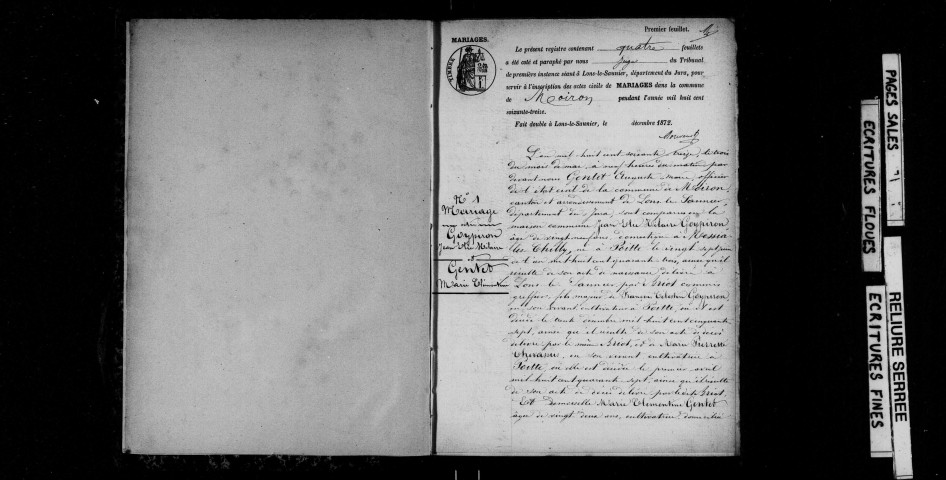 Premier feuillet.
MARIAGES.
Le présent registre contenant quatre feuillets
a été coté et paraphé par nous Juge du Tribunal
de première instance séant à Lons-le-Saunier, département du Jura, pour
servir à l'inscription des actes civils de MARIAGES dans la commune
de Moiron pendant l'année mil huit cent
soixante-treize.
Fait double à Lons-le-Saunier, le décembre 1872.
TIMBRE
L'an mil huit cent soixante treize, le trois
du mois de mai, à heures du matin par
devant nous Gentet Auguste officier
de l'état civil de la commune de Moiron,
canton et arrondissement de Lons le Saunier,
département du Jura, sont comparus en la
maison commune Jean Hilaire Goypiron
âgé de vingt neuf ans, à Messia
les Chilly, né à Poitte le vingt sept
mil huit cent quarante trois, ainsi qu'il
résulte de son acte de naissance délivré à
Lons le Saunier par Briot commis
greffier, fils majeur de François Célestin Goypiron
en son vivant cultivateur à Poitte, où il est
décédé le trente décembre mil huit cent cinquante
sept, ainsi que il résulte de son acte de décès
délivré par le même Briot, et de Marie Pierrette
en son vivant cultivatrice à
Poitte, où elle est décédée le premier avril
mil huit cent quarante sept, ainsi qu'il résulte
de son acte de décès délivré par Briot.
Et Demoiselle Marie Clémentine Gentet
âgée de vingt deux ans, cultivatrice
N° 1
Mariage
Goypiron
Jean Hilaire
et
Gentet
Marie Clémentine
PAGES SALES
ECRITURES FLOUES
RELIURE SERREE
ECRITURES FINES